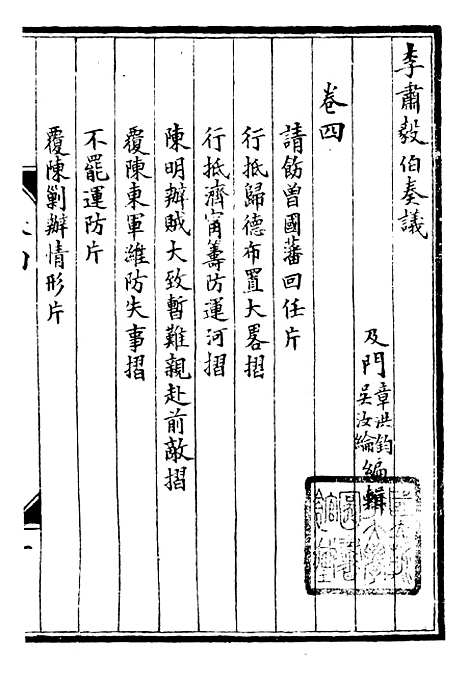 李肅毅伯奏議
及門章洪鈞吳汝綸編輯
卷四
請飭曾國藩回任片
行抵歸德布置大畧摺
行抵濟甯籌防運河摺
陳明辦賊大致暫難親赴前敵摺
覆陳東軍濰防失事摺
不罷運防片
覆陳剿辦情形片